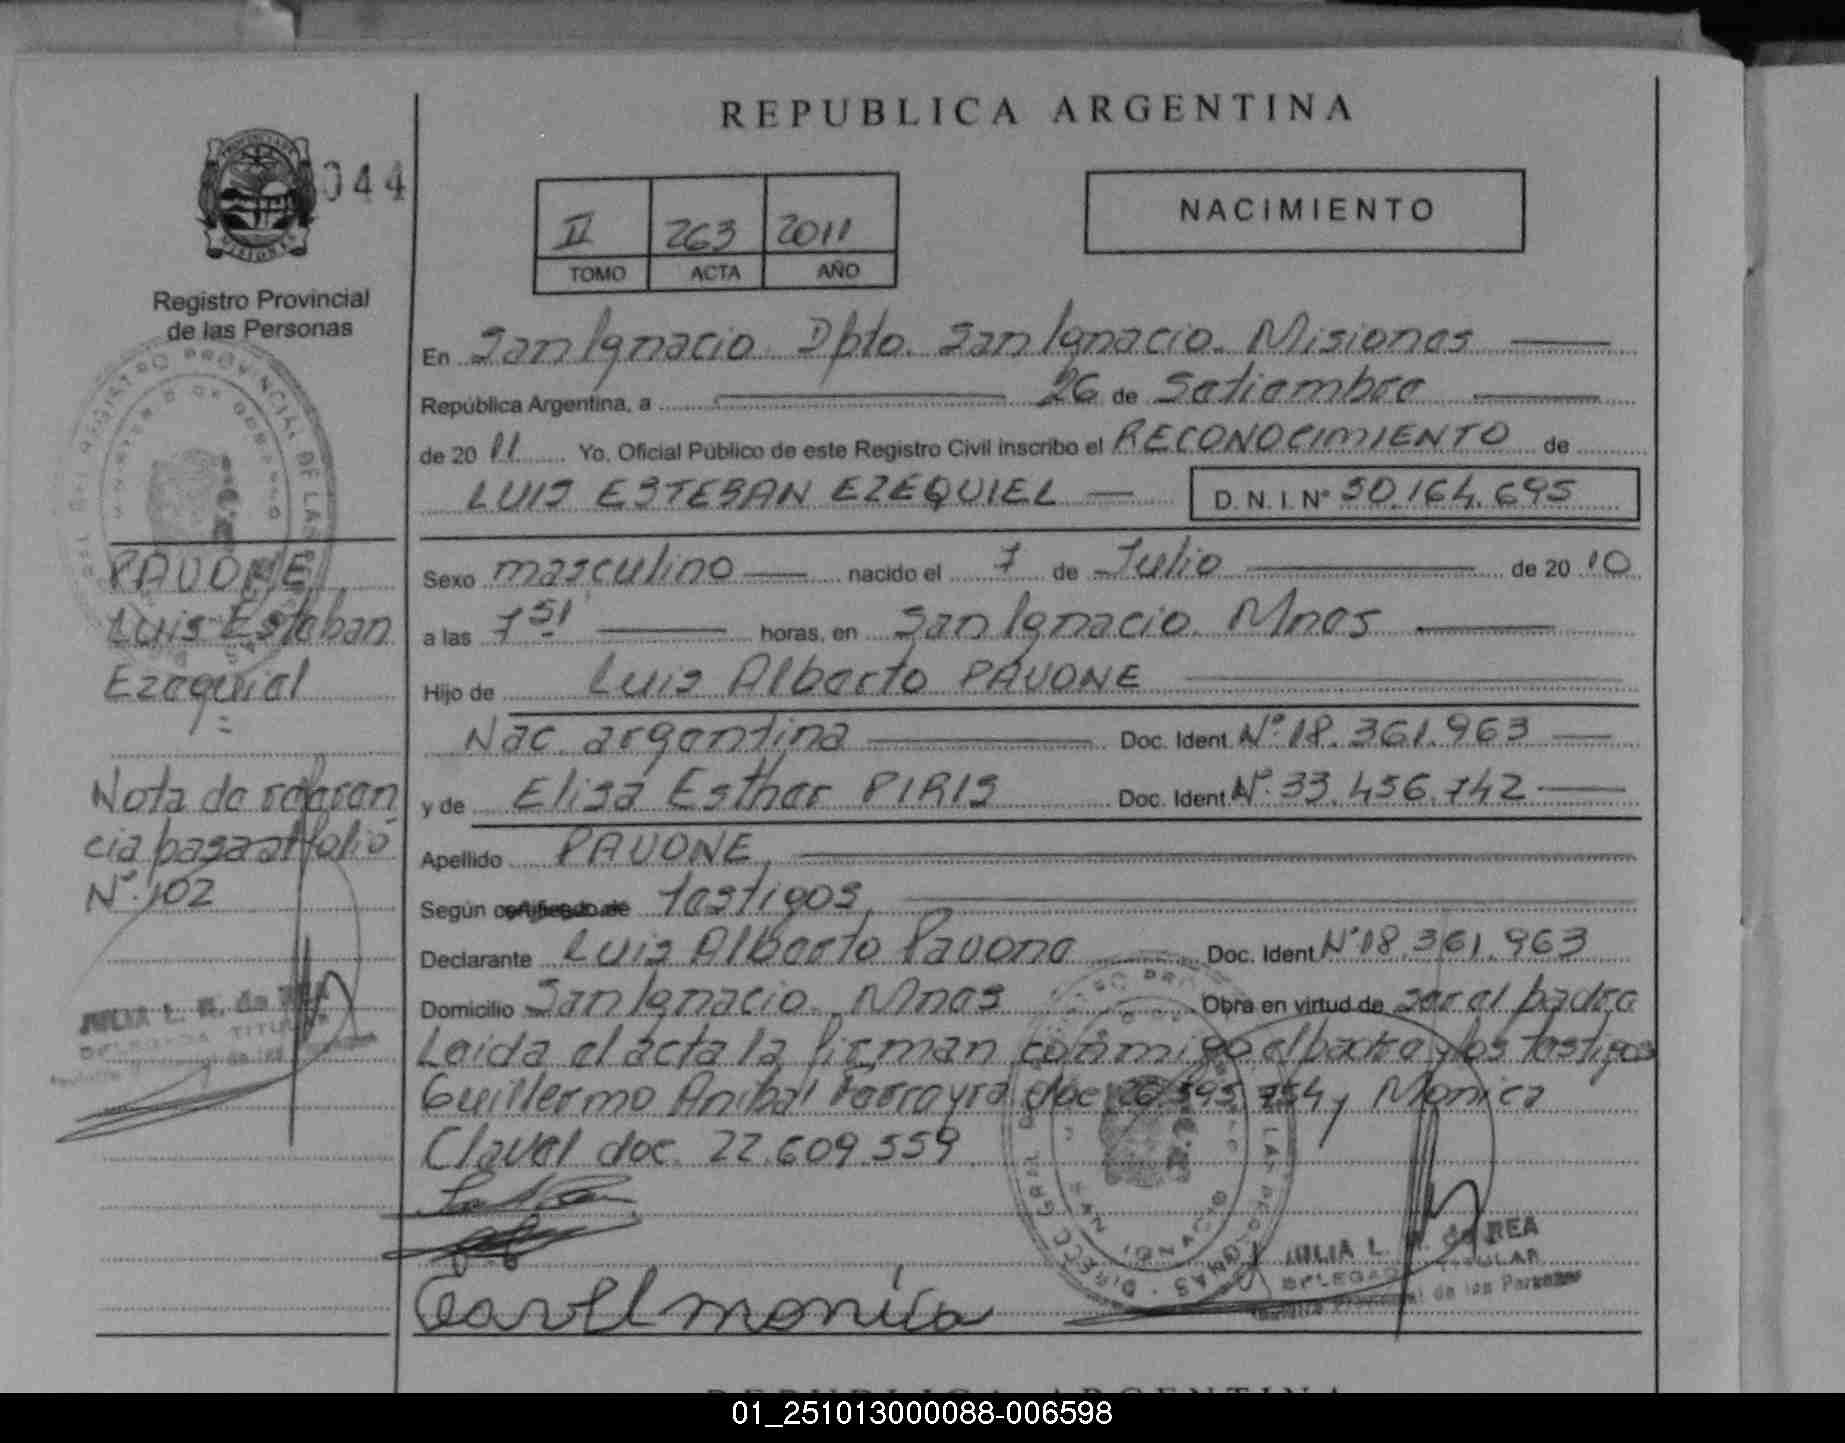 REPUBLICA ARGENTINA
044
II 263 2011
TOMO ACTA AÑO
NACIMIENTO
Registro Provincial
de las Personas
En San Ignacio Dpto. San Ignacio. Misiones
República Argentina, a 26 de Setiembre
de 20 11 Yo, Oficial Público de este Registro Civil inscribo el RECONOCIMIENTO de
LUIS ESTEBAN EZEQUIEL D. N. I. N° 50.164.695
Sexo masculino nacido el 7 de Julio de 20 10
a las 7 51 horas, en San Ignacio Mnes
Hijo de Luis Alberto PAVONE
Nac. argentina Doc. Ident. N° 18.361.963
y de Elisa Esther PIRIS Doc. Ident. N° 33.456.742
Apellido PAVONE
Según certificado de testigos
Declarante Luis Alberto Pavone Doc. Ident. N° 18.361.963
Domicilio San Ignacio. Mnes Obra en virtud de ser el padre
Leida el acta la firman conmigo el padre y los testigos
Guillermo Anibal Ferreyra doc 395 754 y Monica
Clavel doc. 22.609.559
PAVONE
Luis Esteban
Ezequiel
Nota de referen
cia pasa al folio
N° 102
JULIA L. de REA
DELEGADA TITULAR
Monica
JULIA L. de REA
DELEGADA TITULAR
Registro Provincial de las Personas
REPUBLICA ARGENTINA
01_251013000088-006598